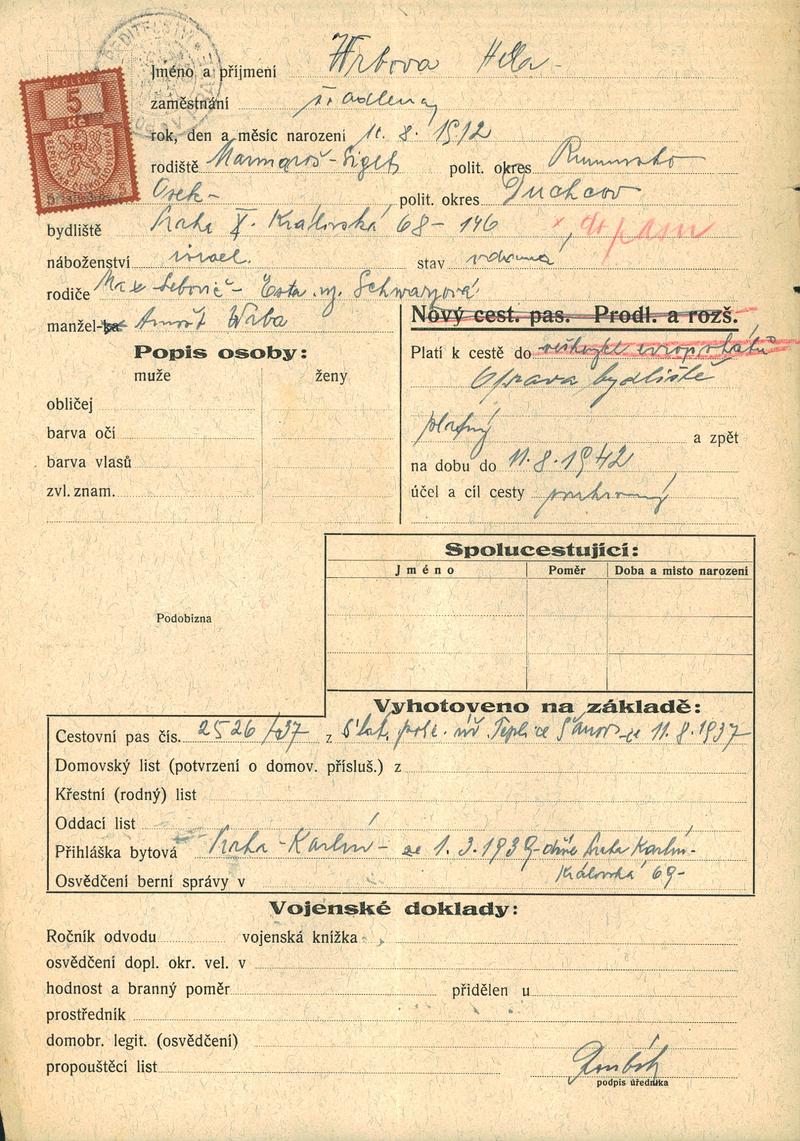 KOLEK
5
Kč
5
ŘEDITELSTVÍ
Jméno a příjmení Wrbova Hella
zaměstnání švadlena
rok, den a měsíc narození 11. 8. 1912
rodiště Marmaroš-Siget polit. okres Rumunsko
Osek - polit. okres Duchcov
bydliště Praha X. Královská 68 - 146
náboženství israel. stav vdaná
rodiče Max Lebovič - Esta Schwarzová
manžel-ka Arnošt Wrba
Nový cest. pas. Prodl. a rozš.
Platí k cestě do
Oprava bydliště
platný a zpět
na dobu do 11. 8. 1942
účel a cíl cesty soukromý
Popis osoby:
muže ženy
obličej
barva očí
barva vlasů
zvl. znam.
Podobizna
Spolucestující:
Jméno Poměr Doba a misto narození
Vyhotoveno na základě:
Cestovní pas čís. 2526/37 z Stat. pol. úř. Teplice Šanov ze 11. 8. 1937
Domovský list (potvrzení o domov. přísluš.) z
Křestní (rodný) list
Oddací list
Přihláška bytová Praha - Karlín - ze 1. 3. 1939 - dříve Praha Karlín -
Královská 69 -
Osvědčení berní správy v
Vojenské doklady:
Ročník odvodu vojenská knížka
osvědčení dopl. okr. vel. v
hodnost a branný poměr přidělen u
prostředník
domobr. legit. (osvědčení)
propouštěcí list
podpis úředníka